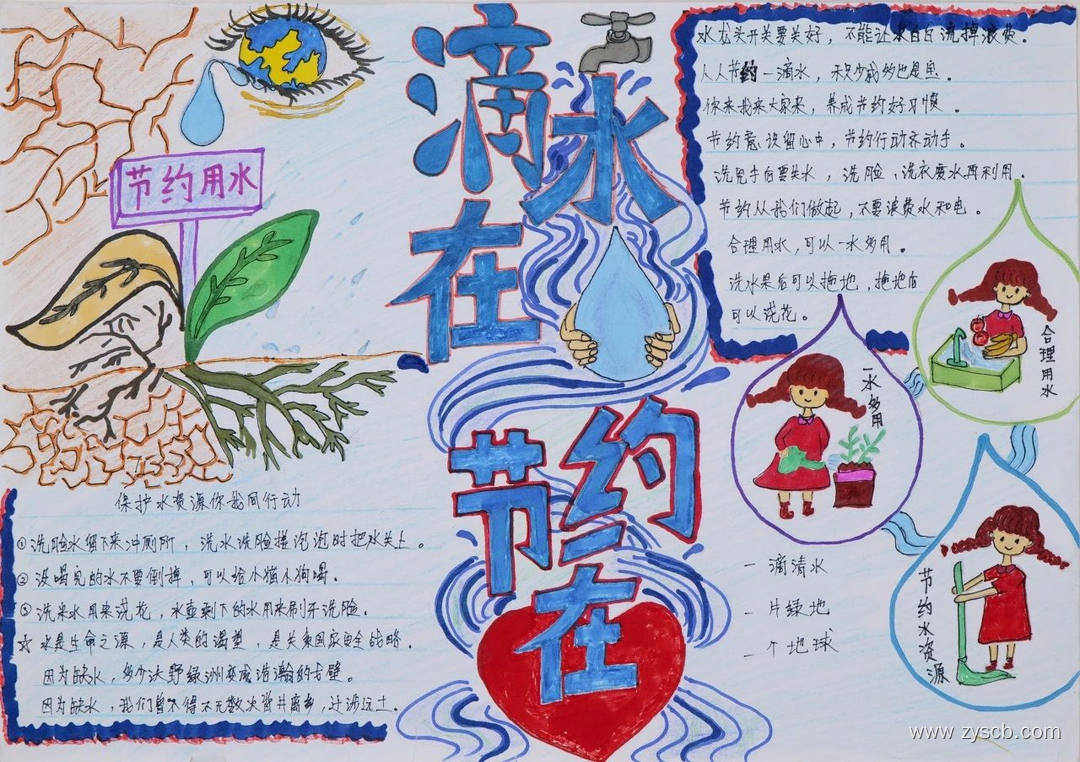 滴水在
节约在
节约用水
水龙头开关要关好，不能让水白白流掉浪费。
人人节约一滴水，积少成多也是宝。
你来我来大家来，养成节约好习惯。
节约意识留心中，节约行动齐动手。
洗完手后要关水，洗脸、洗衣废水再利用。
节约从我们做起，不要浪费水和电。
合理用水，可以一水多用。
洗水果后可以拖地，拖地后
可以浇花。
合理用水
一水多用
节约水资源
一滴清水
一片绿地
一个地球
保护水资源你我同行动
①洗脸水留下来冲厕所，洗水洗脸搓泡泡时把水关上。
②没喝完的水不要倒掉，可以给小猫小狗喝。
③洗米水用来浇花，水壶剩下的水用来刷牙洗脸。
☆水是生命之源，是人类的渴望，是关乎国家安全战略。
因为缺水，多少沃野绿洲变成浩瀚的戈壁。
因为缺水，我们曾不得不无数次背井离乡，迁涉远土。
www.zyscb.com